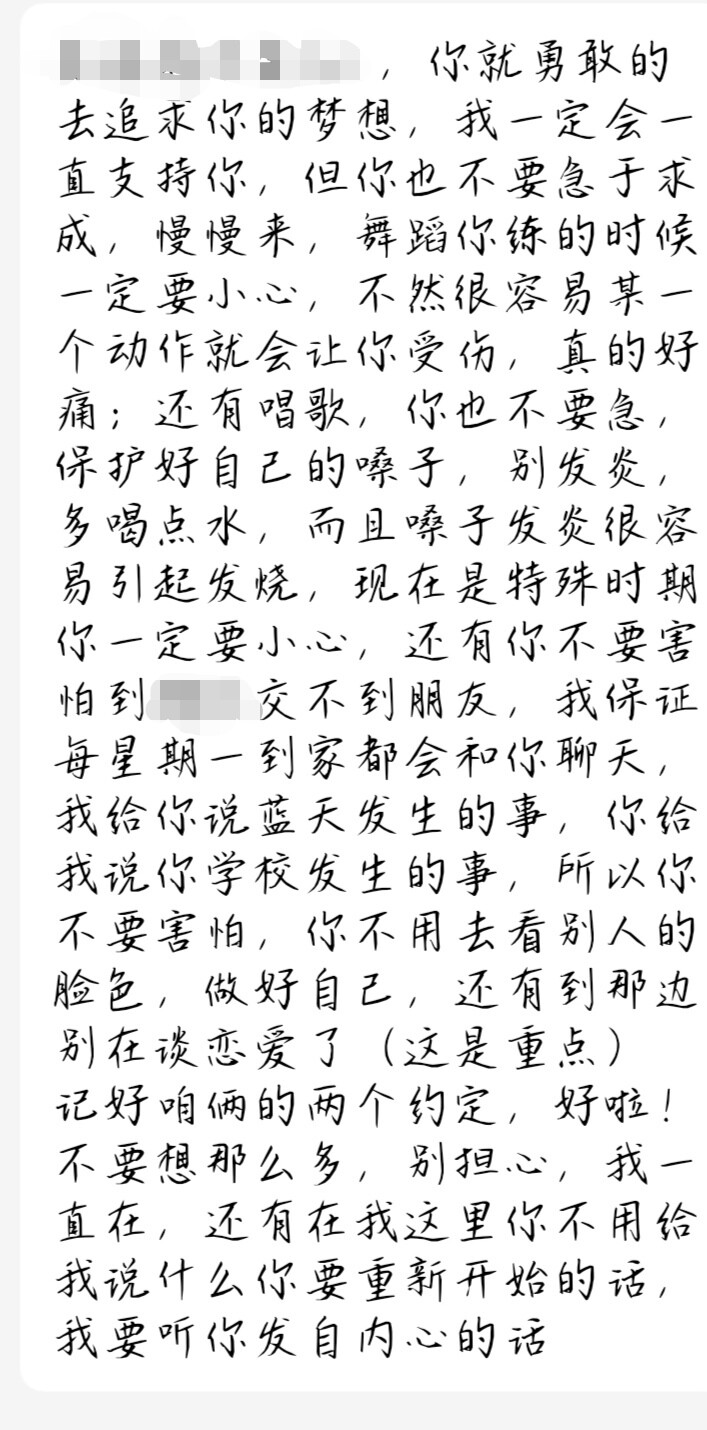 ，你就勇敢的
去追求你的梦想，我一定会一
直支持你，但你也不要急于求
成，慢慢来，舞蹈你练的时候
一定要小心，不然很容易某一
个动作就会让你受伤，真的好
痛；还有唱歌，你也不要急，
保护好自己的嗓子，别发炎，
多喝点水，而且嗓子发炎很容
易引起发烧，现在是特殊时期
你一定要小心，还有你不要害
怕到交不到朋友，我保证
每星期一到家都会和你聊天，
我给你说蓝天发生的事，你给
我说你学校发生的事，所以你
不要害怕，你不用去看别人的
脸色，做好自己，还有到那边
别在谈恋爱了（这是重点）
记好咱俩的两个约定，好啦！
不要想那么多，别担心，我一
直在，还有在我这里你不用给
我说什么你要重新开始的话，
我要听你发自内心的话